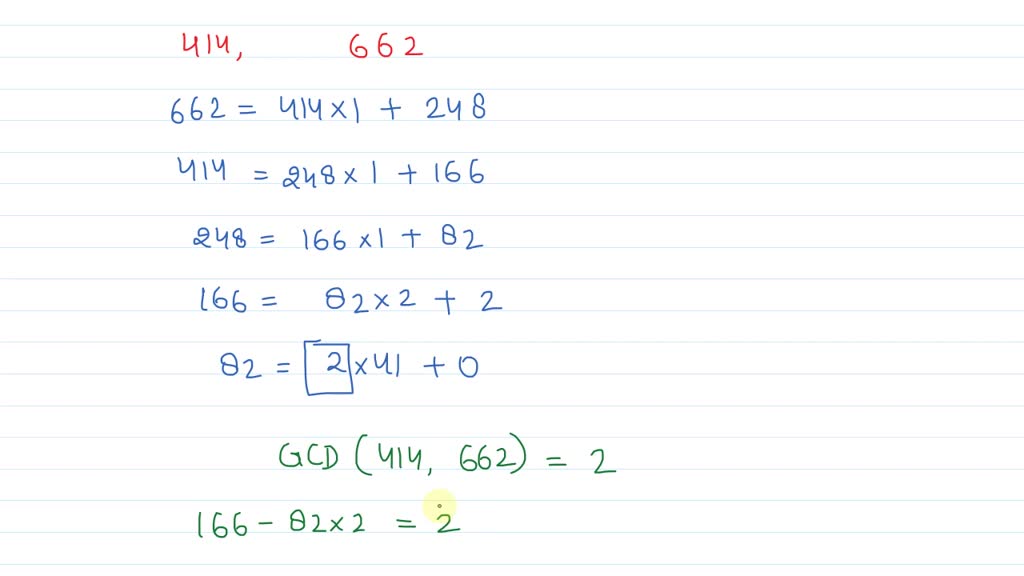 414, 662
662 = 414 × 1 + 248
414 = 248 × 1 + 166
248 = 166 × 1 + 82
166 = 82 × 2 + 2
82 = 2 × 41 + 0
GCD (414, 662) = 2
166 - 82 × 2 = 2